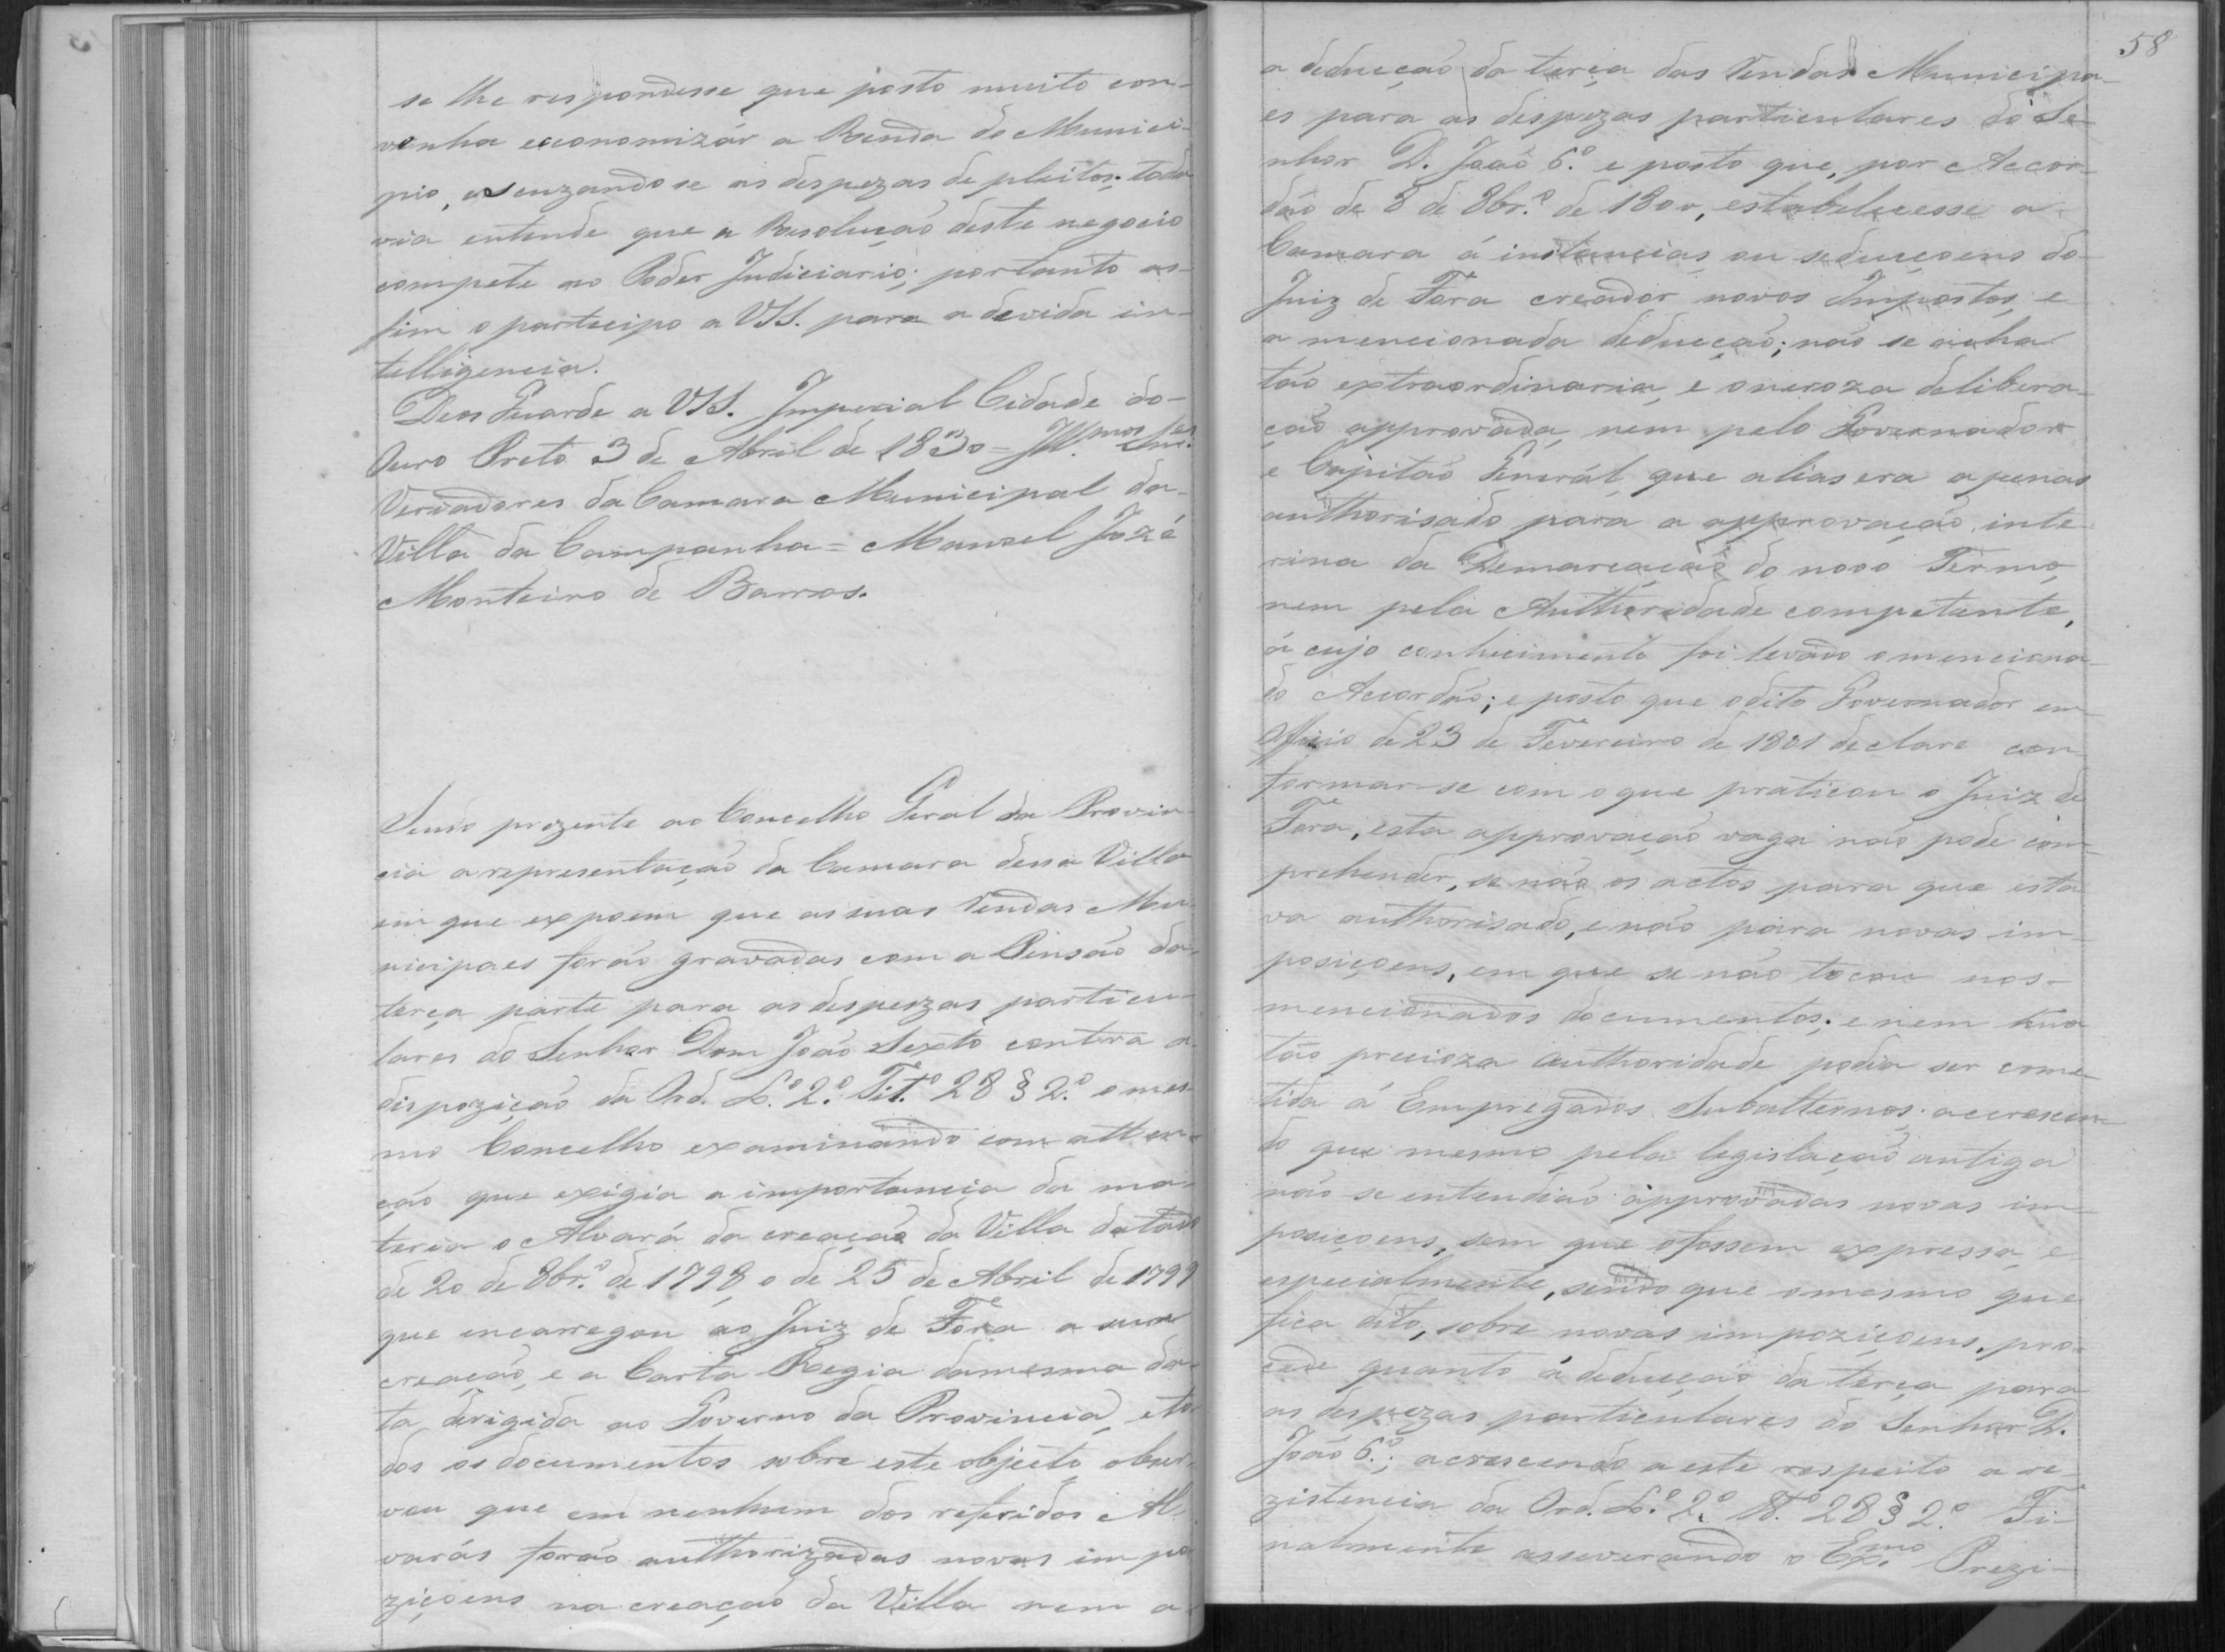 se lhe respondesse que posto muito con-
venha economizár a Renda do Munici-
pio, escuzando se as despezas de pleitos; toda
via entende que a Resolução deste negocio
compete ao Poder Judiciario; portanto as-
sim o participo a VSS. para a devida in-
telligencia.
Deos Guarde a VSS. Imperial Cidade do
Ouro Preto 3 de Abril de 1830 = Ill.mos Snr.es
Veriadores da Camara Municipal da
Villa da Campanha = Manoel Jozé
Monteiro de Barros.
Sendo prezente ao Concelho Geral da Provin-
cia a representação da Camara dessa Villa
em que expoem que as suas Rendas Mu-
nicipaes forão gravadas com a Pensão da
terça parte para as despezas particu-
lares do Senhor Dom João Sexto contra a
dispozição da Ord. L.º 2.º Tit.º 28 § 2.º o mes-
mo Concelho examinando com atten-
ção que exigia a importancia da ma-
teria o Alvará da creação da Villa datado
de 20 de 8br.º de 1798, o de 25 de Abril de 1799
que encarregou ao Juiz de Fóra a sua
creação, e a Carta Regia da mesma da-
ta dirigida ao Governo da Provincia, e to-
dos os documentos sobre este objecto, obser-
vou que em nenhum dos referidos Al-
varás forão authorizadas novas impo-
ziçoens na creação da Villa nem a
58
a deducção da terça das Rendas Municipa-
es para as despezas particulares do Se-
nhor D. João 6.º e posto que, por Accor-
dão de 8 de 8br.º de 1800, estabelecesse a
Camara á instancias, ou seducçoens do
Juiz de Fóra creador novos Impostos, e
a mencionada deducção; não se acha
tão extraordinaria, e oneroza delibera-
ção approvada, nem pelo Governador
e Capitão Generál, que alias era apenas
authorisado para a approvação inte-
rina da Demarcação do novo Termo,
nem pela Authoridade competente,
á cujo conhecimento foi levado o menciona-
do Accordão; e posto que o dito Governador em
Officio de 23 de Fevereiro de 1801 declare con-
formar-se com o que praticou o Juiz de
Fóra, esta approvação vaga não pode com-
prehender, se não os actos para que esta-
va authorisado, e não para novas im-
posiçoens, em que se não tocou nos
mencionados documentos; e nem huá
tão precioza authoridade podia ser come-
tida á Empregados Subalternos; accrescen-
do que mesmo pela legislação antiga
não se entendião approvadas novas im-
posiçoens, sem que o fossem expressa, e
especialmente, sendo que o mesmo que
fica dito, sobre novas impoziçoens, pro-
cede quanto á deducção da terça para
as despezas particulares do Senhor D.
João 6.º; acrescendo a este respeito a re-
zistencia da Ord. L.º 2.º tt.º 28 § 2.º Fi-
nalmente asseverando o Ex.mo Prezi-